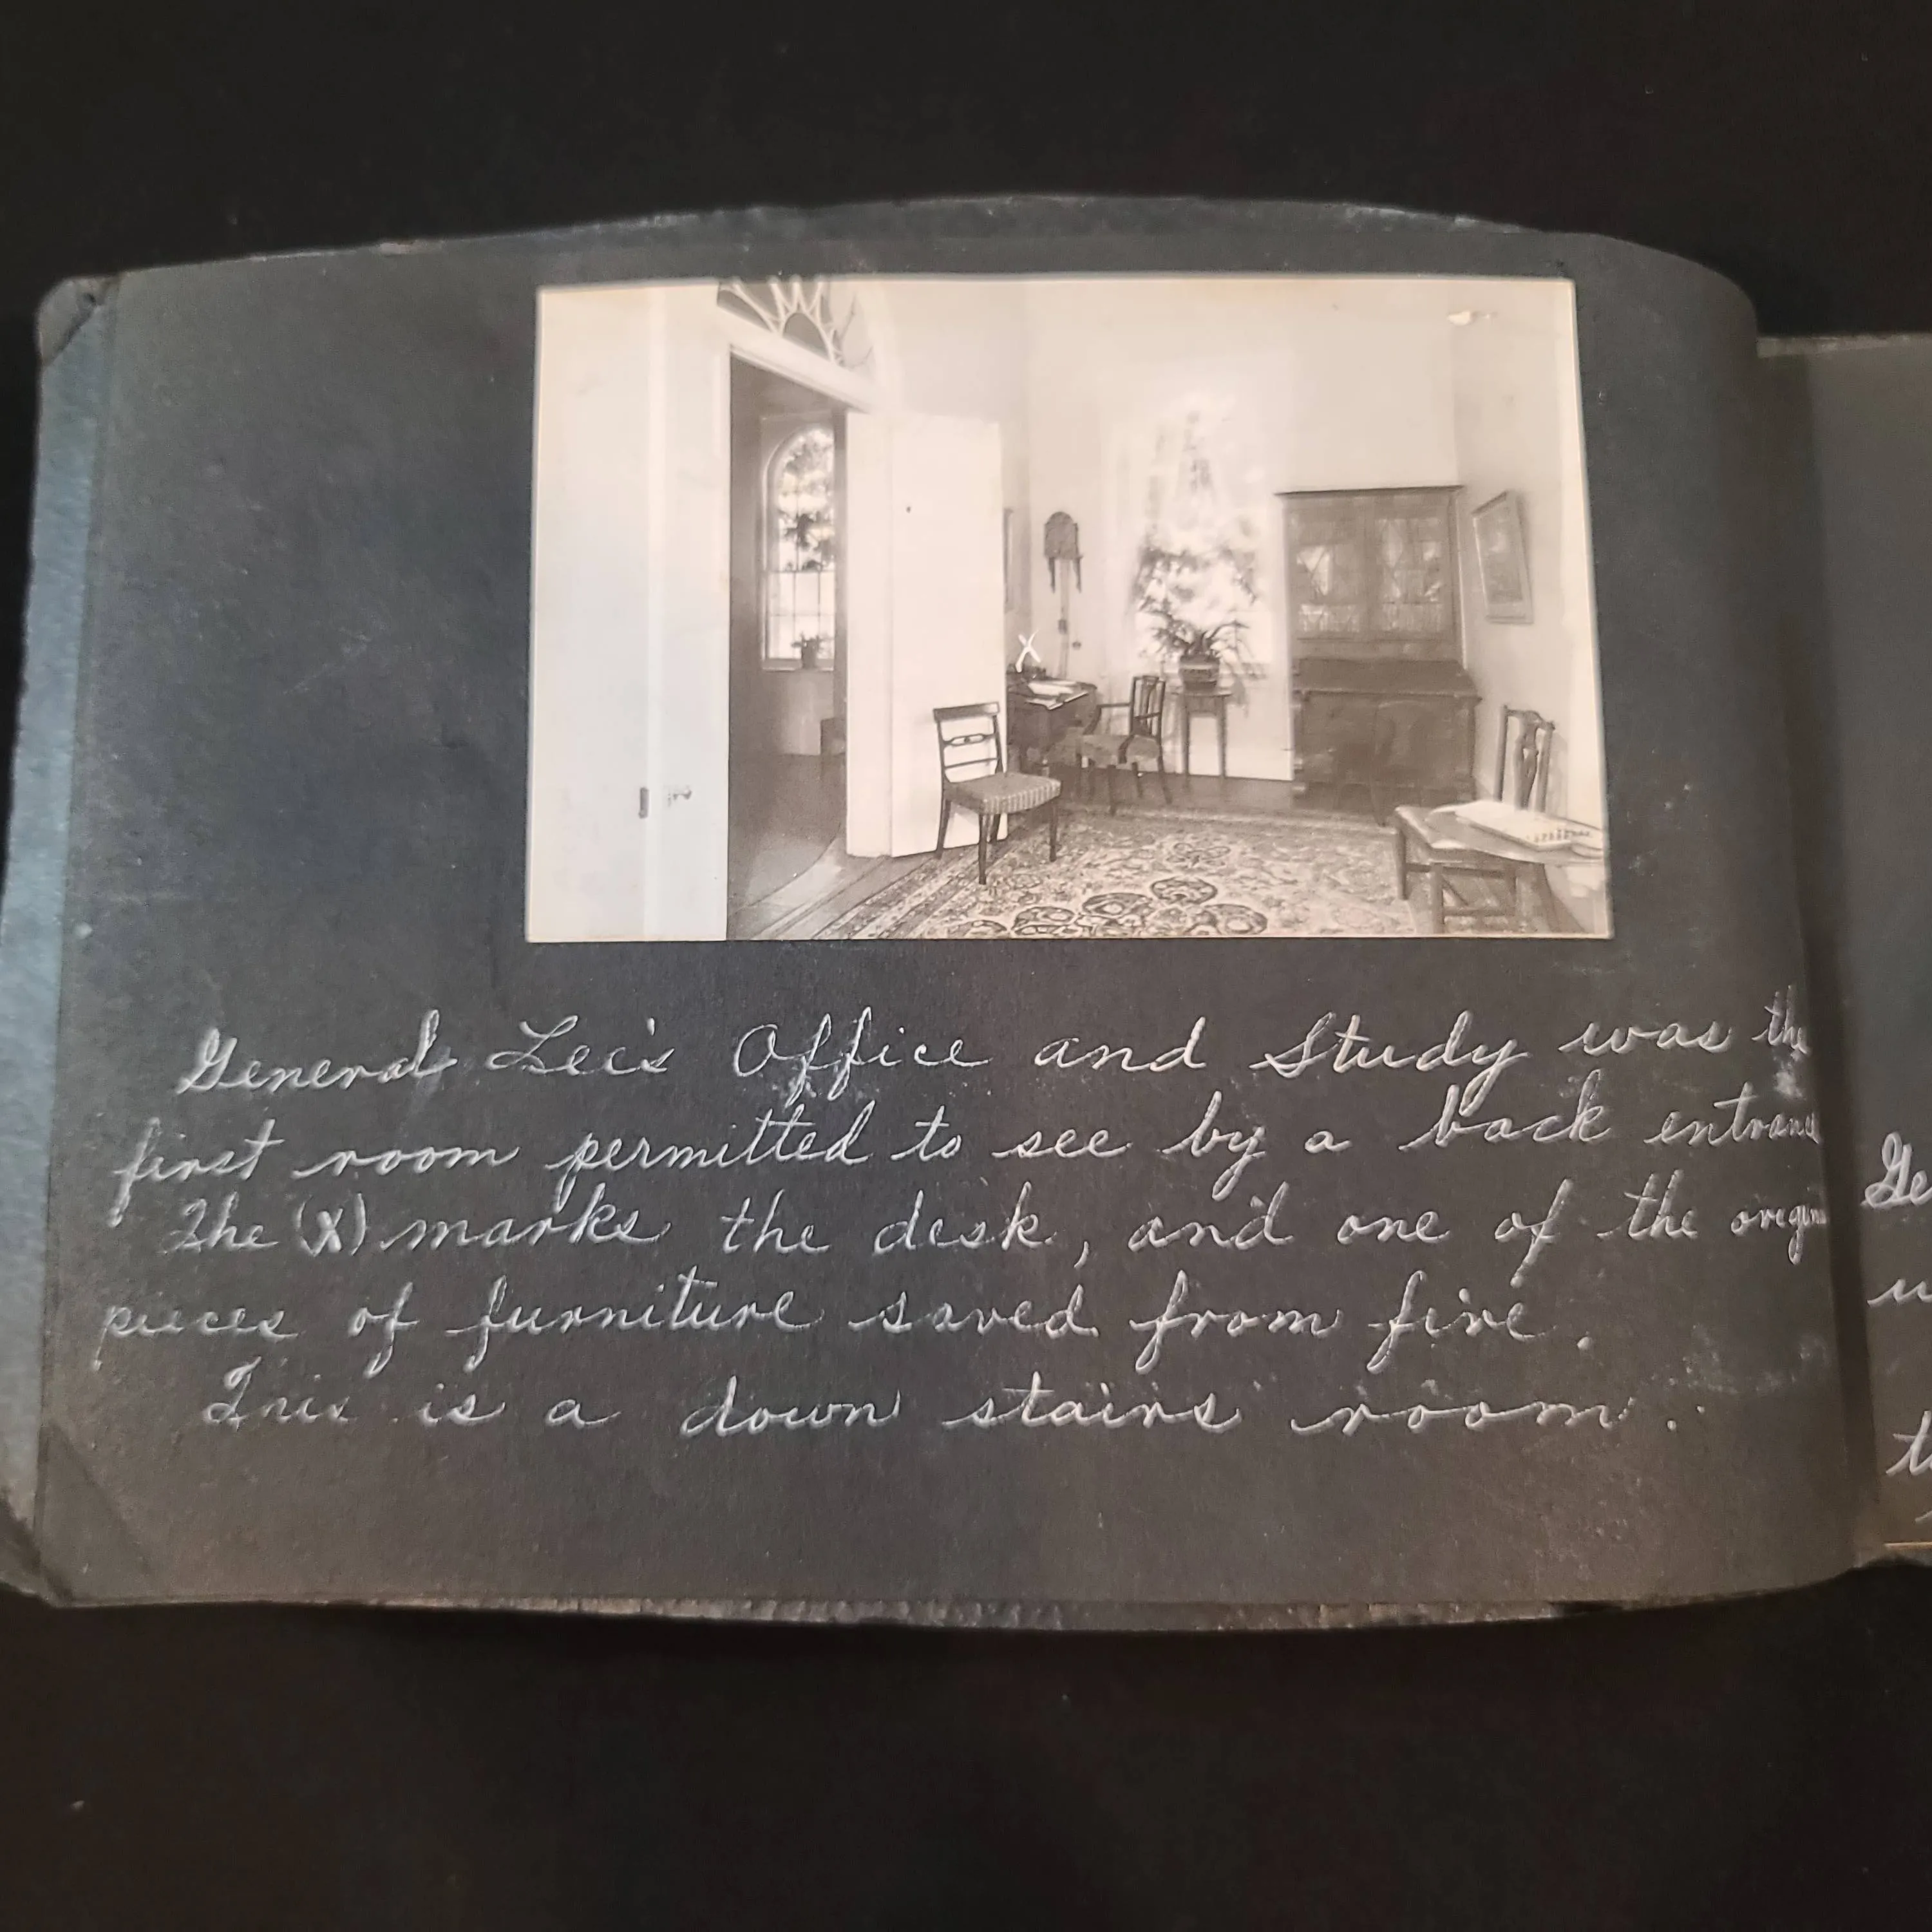 X
General Lee's Office and Study was the
first room permitted to see by a back entrance
The (X) marks the desk, and one of the
pieces of furniture saved from fire.
This is a down stairs room.
Ge